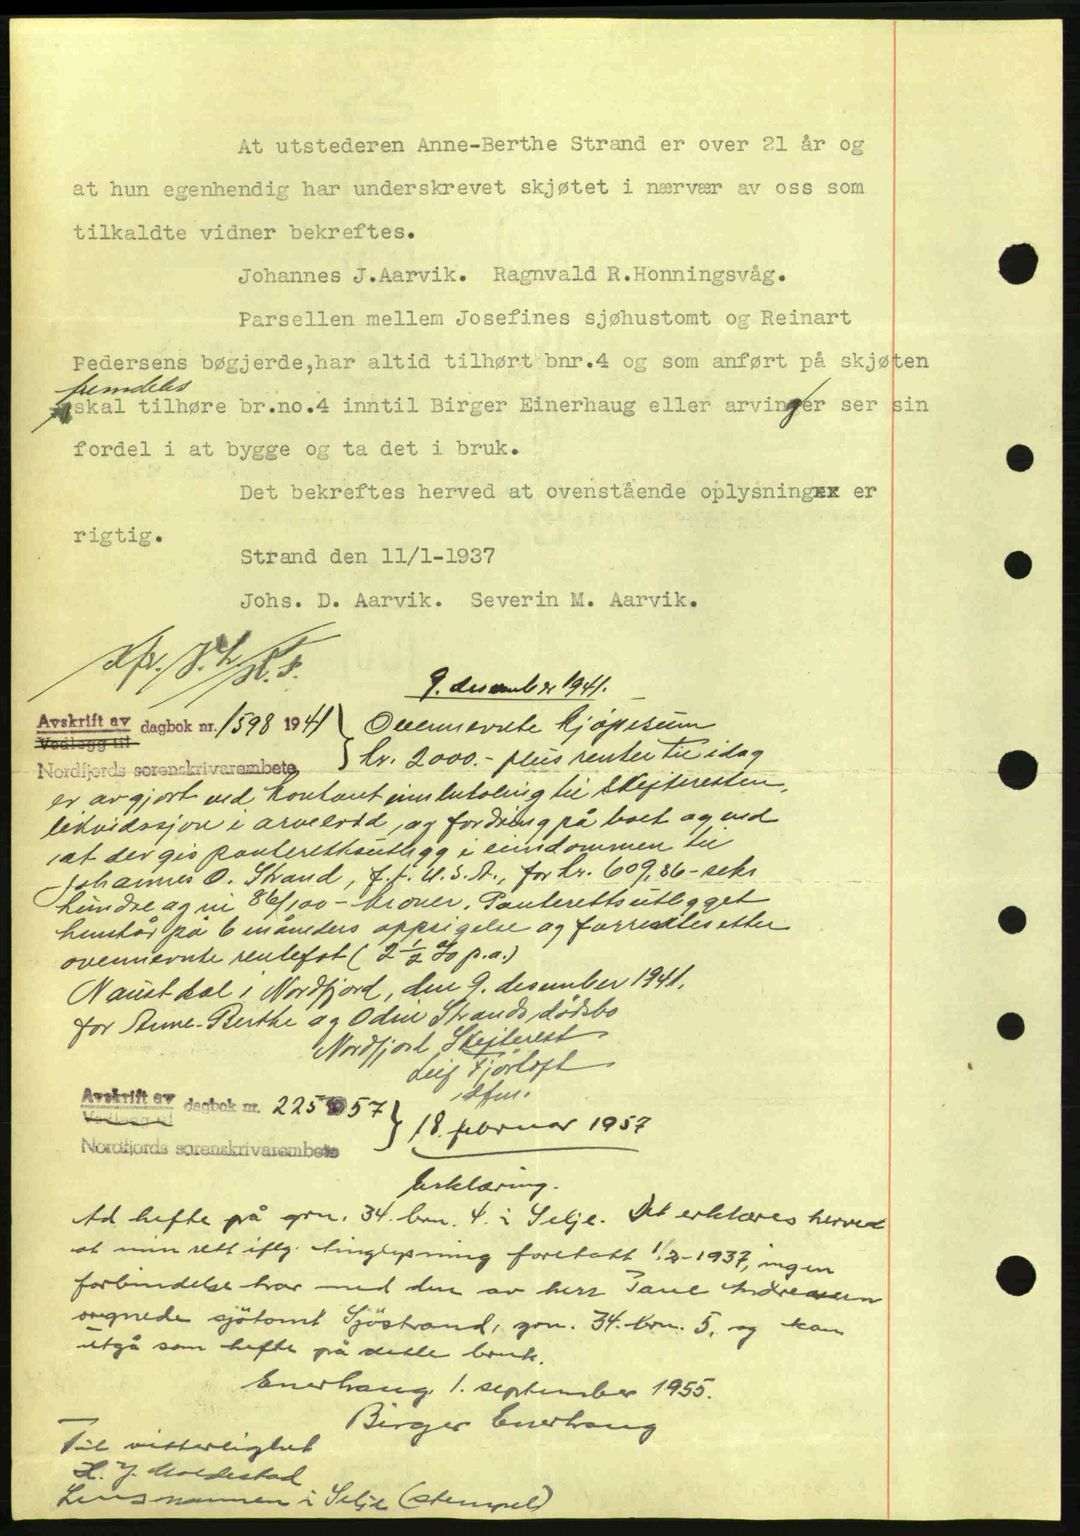 At utstederen Anne-Berthe Strand er over 21 år og
at hun egenhendig har underskrevet skjøtet i nærvær av oss som
tilkaldte vidner bekreftes.
Johannes J.Aarvik. Ragnvald R.Honningsvåg.
Parsellen mellem Josefines sjøhustomt og Reinart
Pedersens bøgjerde,har altid tilhørt bnr.4 og som anført på skjøten
fremdeles
skal tilhøre br.no.4 inntil Birger Einerhaug eller arvinger ser sin
fordel i at bygge og ta det i bruk.
Det bekreftes herved at ovenstående oplysning er
rigtig.
Strand den 11/1-1937
Johs. D. Aarvik. Severin M. Aarvik.
9. desember 1941.
Avskrift av dagbok nr. 1598 1941 } Ovennevnte kjøpesum
Vedlegg til kr. 2000.- plus renter til idag
Nordfjords sorenskrivarembete
er avgjort ved kontant innbetaling til Skifteretten,
likvidasjon i arvelodd, og fordring på boet og ved
at der gis panterettsutlegg i eiendommen til
Johannes O. Strand, f.t. U.S.A., for kr. 609,86 - seks
hundre og ni 86/100 - kroner. Panterettsutlegget
henstår på 6 måneders oppsigelse og forrentes etter
ovennevnte rentefot ( 2 1/2 % p.a.)
Naustdal i Nordfjord, den 9. desember 1941.
for Anne-Berthe og Odin Strands dødsbo
Nordfjord Skifterett
Leif Fjørtoft
Avskrift av dagbok nr. 225 1957 } 18. februar 1957
Vedlegg til
Nordfjords sorenskrivarembete
Erklæring.
Ad hefte på grn. 34. brn. 4. i Selje. Det erklæres herved
at min rett iflg. tinglysning foretatt 1/2-1937, ingen
forbindelse har med den av herr Paul Andreassen
oregnede sjøtomt Sjøstrand, grn. 34. brn. 5, og kan
utgå som hefte på dette bruk.
Enerhaug, 1. september 1955.
Birger Enerhaug
Til vitterlighet
H. J. Moldestad
Lensmannen i Selje (stempel)